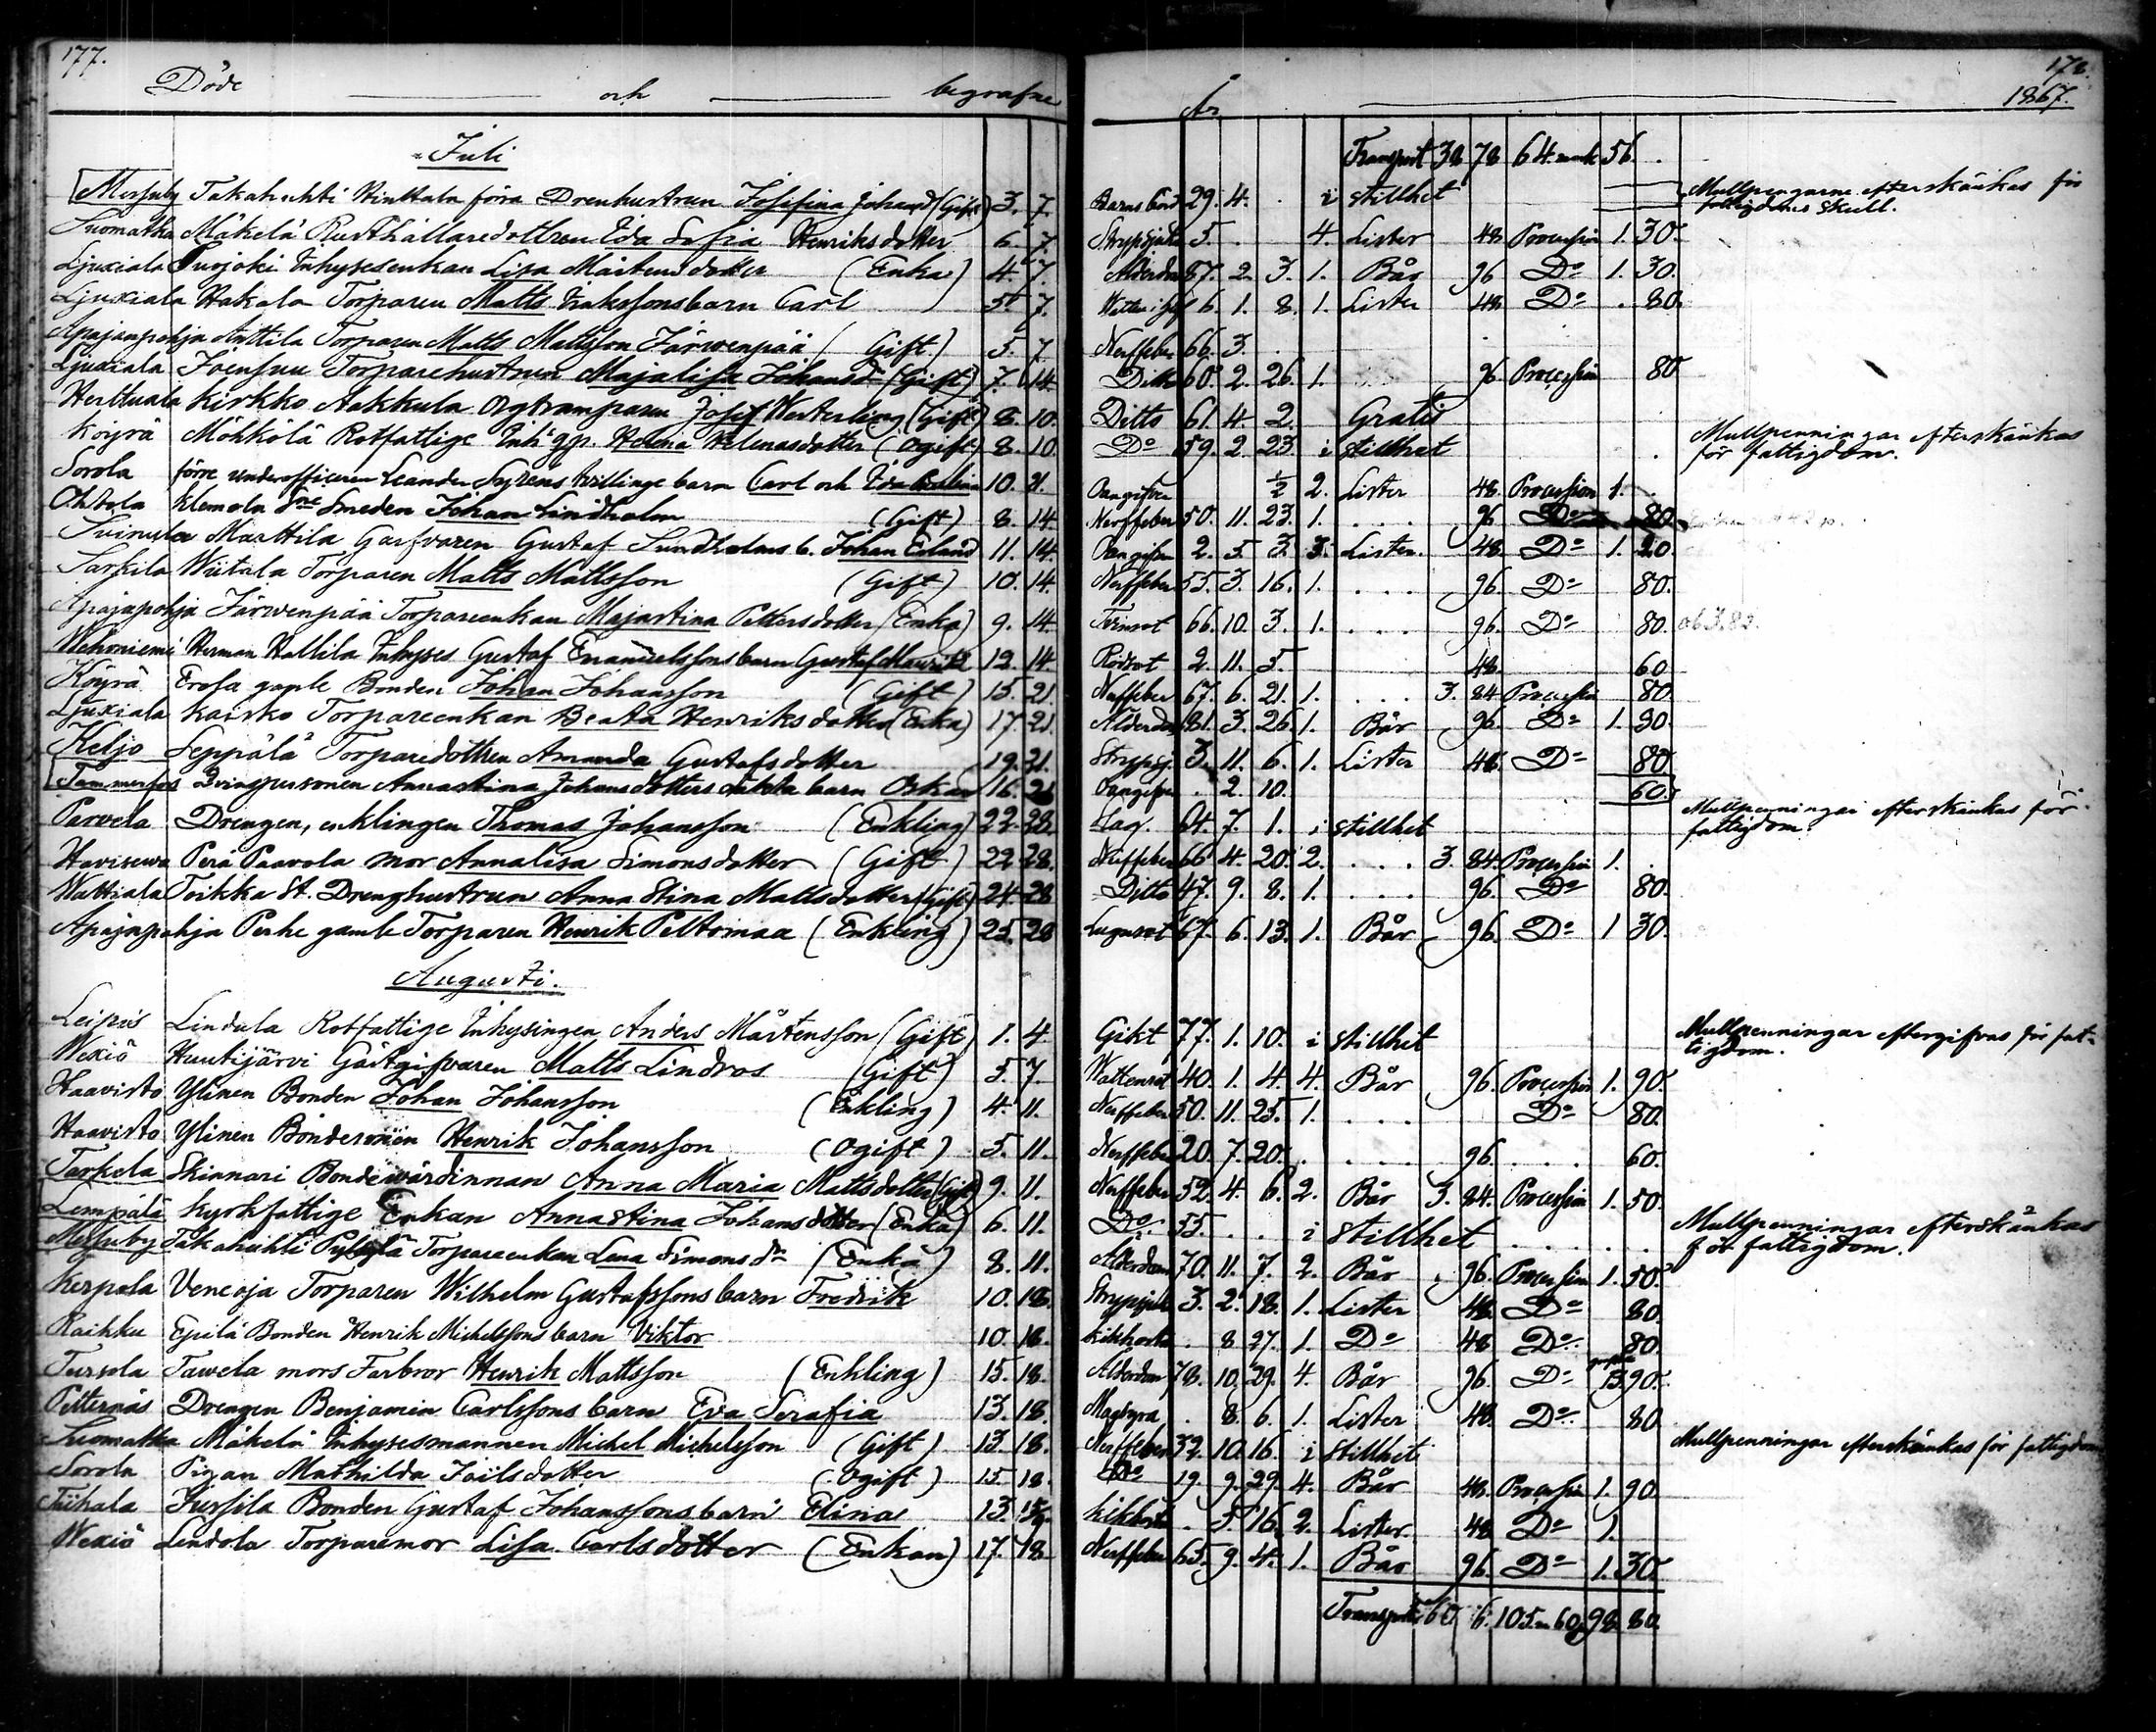 177.
178.
Döde och begrafne
År 1867.
Juli
Transport 38 78 64 mark 56.
Messuby Takahuhti Hinttala förra Drenhustrun Josefina Johansd (Gift) 3. 7. Barns börd 29. 4. i stillhet Mullpengarne efterskänkas för
fattigdoms skull.
Suomatka Mäkelä Rusthållaredottren Eda Sofia Henriksdotter 6. 7. Strypsjuka 5. 4. Lister 48 Procession 1. 30.
Ljuxiala Suojoki Inhysesenkan Lisa Mårtensdotter (Enka) 4. 7. Ålderdom 87. 2. 3. 1. Bår 96 Do 1. 30.
Ljuxiala Hakala Torparen Matts Isakssons barn Carl 5. 7. 6. 1. 8. 1. Lister 48 Do 80.
Apajanpohja Anttila Torparen Matts Mattsson Järwenpää (Gift) 5. 7. Nerffeber 66. 3.
Ljuxiala Joensuu Torparehustrun Majalisa Johansdr (Gift) 7. 14. Ditto 60. 2. 26. 1. 96 Procession 80
Herttuala Kirkko Aakkula Orgtramparen Josef Westerling (Gift) 8. 10. Ditto 61. 4. 2. Gratis
Köyrä Möhkölä Rotfattige Inh. qp. Helena Helenasdotter (ogift) 8. 10. Do 59. 2. 23. i stillhet Mullpenningar efterskänkas
för fattigdom.
Sorola förre underofficeren Leander Syrens tvillinge barn Carl och Eda 10. 21. Oangifven ½ 2. Lister 48. Procession 1.
Ohtola Klemola Sne Smeden Johan Lindholm (Gift) 8. 14. Nerffeber 50. 11. 23. 1. 96 Do 80.
Suinula Marttila Garfvaren Gustaf Sundholms b. Johan Erland 11. 14. Oangifven 2. 5. 3. 3. Lister. 48. Do 1. 20.
Sarkila Wiitala Torparen Matts Mattsson (Gift) 10. 14. Nerffeber 55. 3. 16. 1. 96. Do 80.
Apajapohja Järwenpää Torpareenkan Majastina Pettersdotter (Enka) 9. 14. Twinsot 66. 10. 3. 1. 96. Do 80.
Wehoniemi Herman Hallila Inhyses Gustaf Enanuelssons barn Gustaf Mauritz 12. 14. Rödsot 2. 11. 5. 48. 60
Köyrä Erola gamle Bonden Johan Johansson (Gift) 15. 21. Nerffeber 67. 6. 21. 1. 3. 84 Procession 80.
Ljuxiala Kaisko Torpareenkan Beata Henriksdotter (Enka) 17. 21. Ålderdom 81. 3. 26. 1. Bår 96. Do 1. 30.
Keljo Seppälä Torparedottren Amanda Gustafsdotter 19. 21. Strypsj. 3. 11. 6. 1. Lister 48. Do 80.
Tammerfors Qvinspersonen Annastina Johansdotters oäkta barn Oskar 16. 21. Oangifven . 2. 10. 60.
Parvela Drengen, enklingen Thomas Johansson (Enkling) 22. 28. Slag. 64. 7. 1. i stillhet Mullpenningar efterskänkas för
fattigdom.
Havisewa Perä Paavola mor Annalisa Simonsdotter (Gift) 22. 28. Nerffeber 66. 4. 20. 2. 3. 84. Procession 1.
Wattiala Toikka St. Drenghustrun Anna Stina Mattsdotter (Gift) 24. 28 Ditto 47. 9. 8. 1. 96. Do 80.
Apajapohja Perhe gamle Torparen Henrik Peltomaa (Enkling) 25. 28 Lungsot 67. 6. 13. 1. Bår 96. Do 1 30.
Augusti.
Leipis Lindula Rotfattige Inhysingen Anders Mårtensson (Gift) 1. 4. Gikt 77. 1. 10. i stillhet Mullpenningar eftergifvas för fat-
tigdom.
Wexiö Huutijärvi Gästgifvaren Matts Lindros (Gift) 5. 7. Wattensot 40. 1. 4. 4. Bår 96. Procession 1. 90.
Haavisto Ylinen Bonden Johan Johansson (Enkling) 4. 11. Nerffeber 50. 11. 25. 1. Do 80.
Haavisto Ylinen Bondesonen Henrik Johansson (ogift) 5. 11. Nerffeber 20. 7. 20. 96. 60.
Tarkela Skinnari Bondewärdinnan Anna Maria Mattsdotter (Gift) 9. 11. Nerffeber 52. 4. 6. 2. Bår 3. 84. Procession 1. 50.
Lempälä Kyrkfattige Enkan Annastina Johansdotter (Enka) 6. 11. Do 55. i stillhet Mullpenningar efterskänkas
för fattigdom.
Messuby Takahuhti Pyhylä Torpareenkan Lena Simonsdr (Enka) 8. 11. Ålderdom 70. 11. 7. 2. Bår 96. Procession 1. 50.
Kerpola Veneoja Torparen Wilhelm Gustafssons barn Fredrik 10. 18. Strypsjuk 3. 2. 18. 1. Lister 48. Do 80.
Raikku Epilä Bonden Henrik Michelssons barn Viktor 10. 18. Kikhosta . 8. 27. 1. Do 48 Do 80.
Tursola Tawela mors Farbror Henrik Mattsson (Enkling) 15. 18. Ålderdom 78. 10. 29. 4. Bår 96. Do 90.
Petternäs Drengen Benjamin Carlssons barn Eva Serafia 13. 18. Magsyra . 8. 6. 1. Lister 48. Do 80.
Suomatka Mäkelä Inhysesmannen Michel Michelsson (Gift) 13. 18. Nerffeber 32. 10. 16. i stillhet Mullpenningar efterskänkas för fattigdom
Sorola Pigan Mathilda Joilsdotter (Ogift) 15. 18. Do 19. 9. 29. 4. Bår 48. Procession 1. 90.
Tiihala Jussila Bonden Gustaf Johanssons barn Elina 13. Kikhosta . 5. 16. 2. Lister 48 Do 1.
Wexiö Lindola Torparemor Lisa Carlsdotter (Enkan) 17. 18 Nerffeber 65. 9. 4. 1. Bår 96. Do 1. 30.
Transport 60. 6. 105 m 60 98. 80.